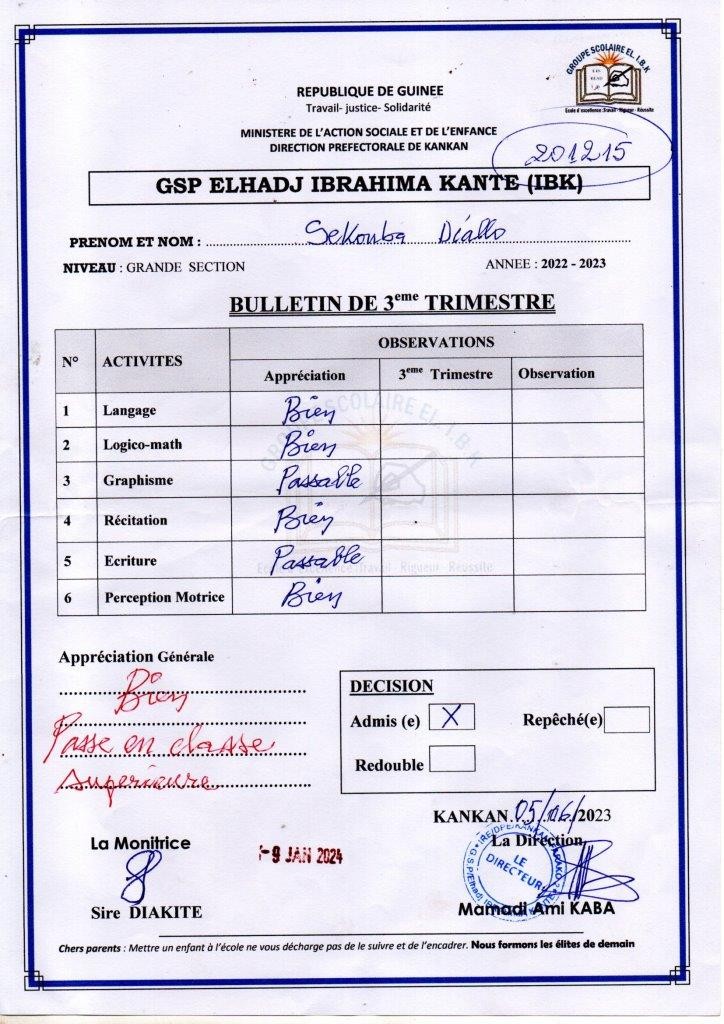 GROUPE SCOLAIRE EL. I.B.K
Ecole d'excellence :Travail - Rigueur - Réussite
REPUBLIQUE DE GUINEE
Travail- justice- Solidarité
MINISTERE DE L'ACTION SOCIALE ET DE L'ENFANCE
DIRECTION PREFECTORALE DE KANKAN
201215
GSP ELHADJ IBRAHIMA KANTE (IBK)
PRENOM ET NOM : Sekouba Diallo
NIVEAU : GRANDE SECTION ANNEE : 2022 - 2023
BULLETIN DE 3eme TRIMESTRE
N° ACTIVITES OBSERVATIONS
Appréciation 3eme Trimestre Observation
1 Langage Bien
2 Logico-math Bien
3 Graphisme Passable
4 Récitation Bien
5 Ecriture Passable
6 Perception Motrice Bien
GROUPE SCOLAIRE EL. I.B.K
Ecole d'excellence :Travail - Rigueur - Réussite
Appréciation Générale
Bien
Passe en classe
superieure
DECISION
Admis (e) X Repêché(e)
Redouble
KANKAN 05/06/2023
La Monitrice
La Direction
-9 JAN 2024
LE
DIRECTEUR
Sire DIAKITE
Mamadi Ami KABA
Chers parents : Mettre un enfant à l'école ne vous décharge pas de le suivre et de l'encadrer. Nous formons les élites de demain